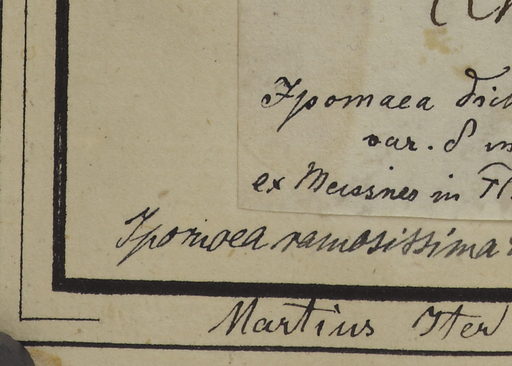 Ipomaea
var. δ
ex Meissner in
Ipomoea ramosissima
Martius Iter